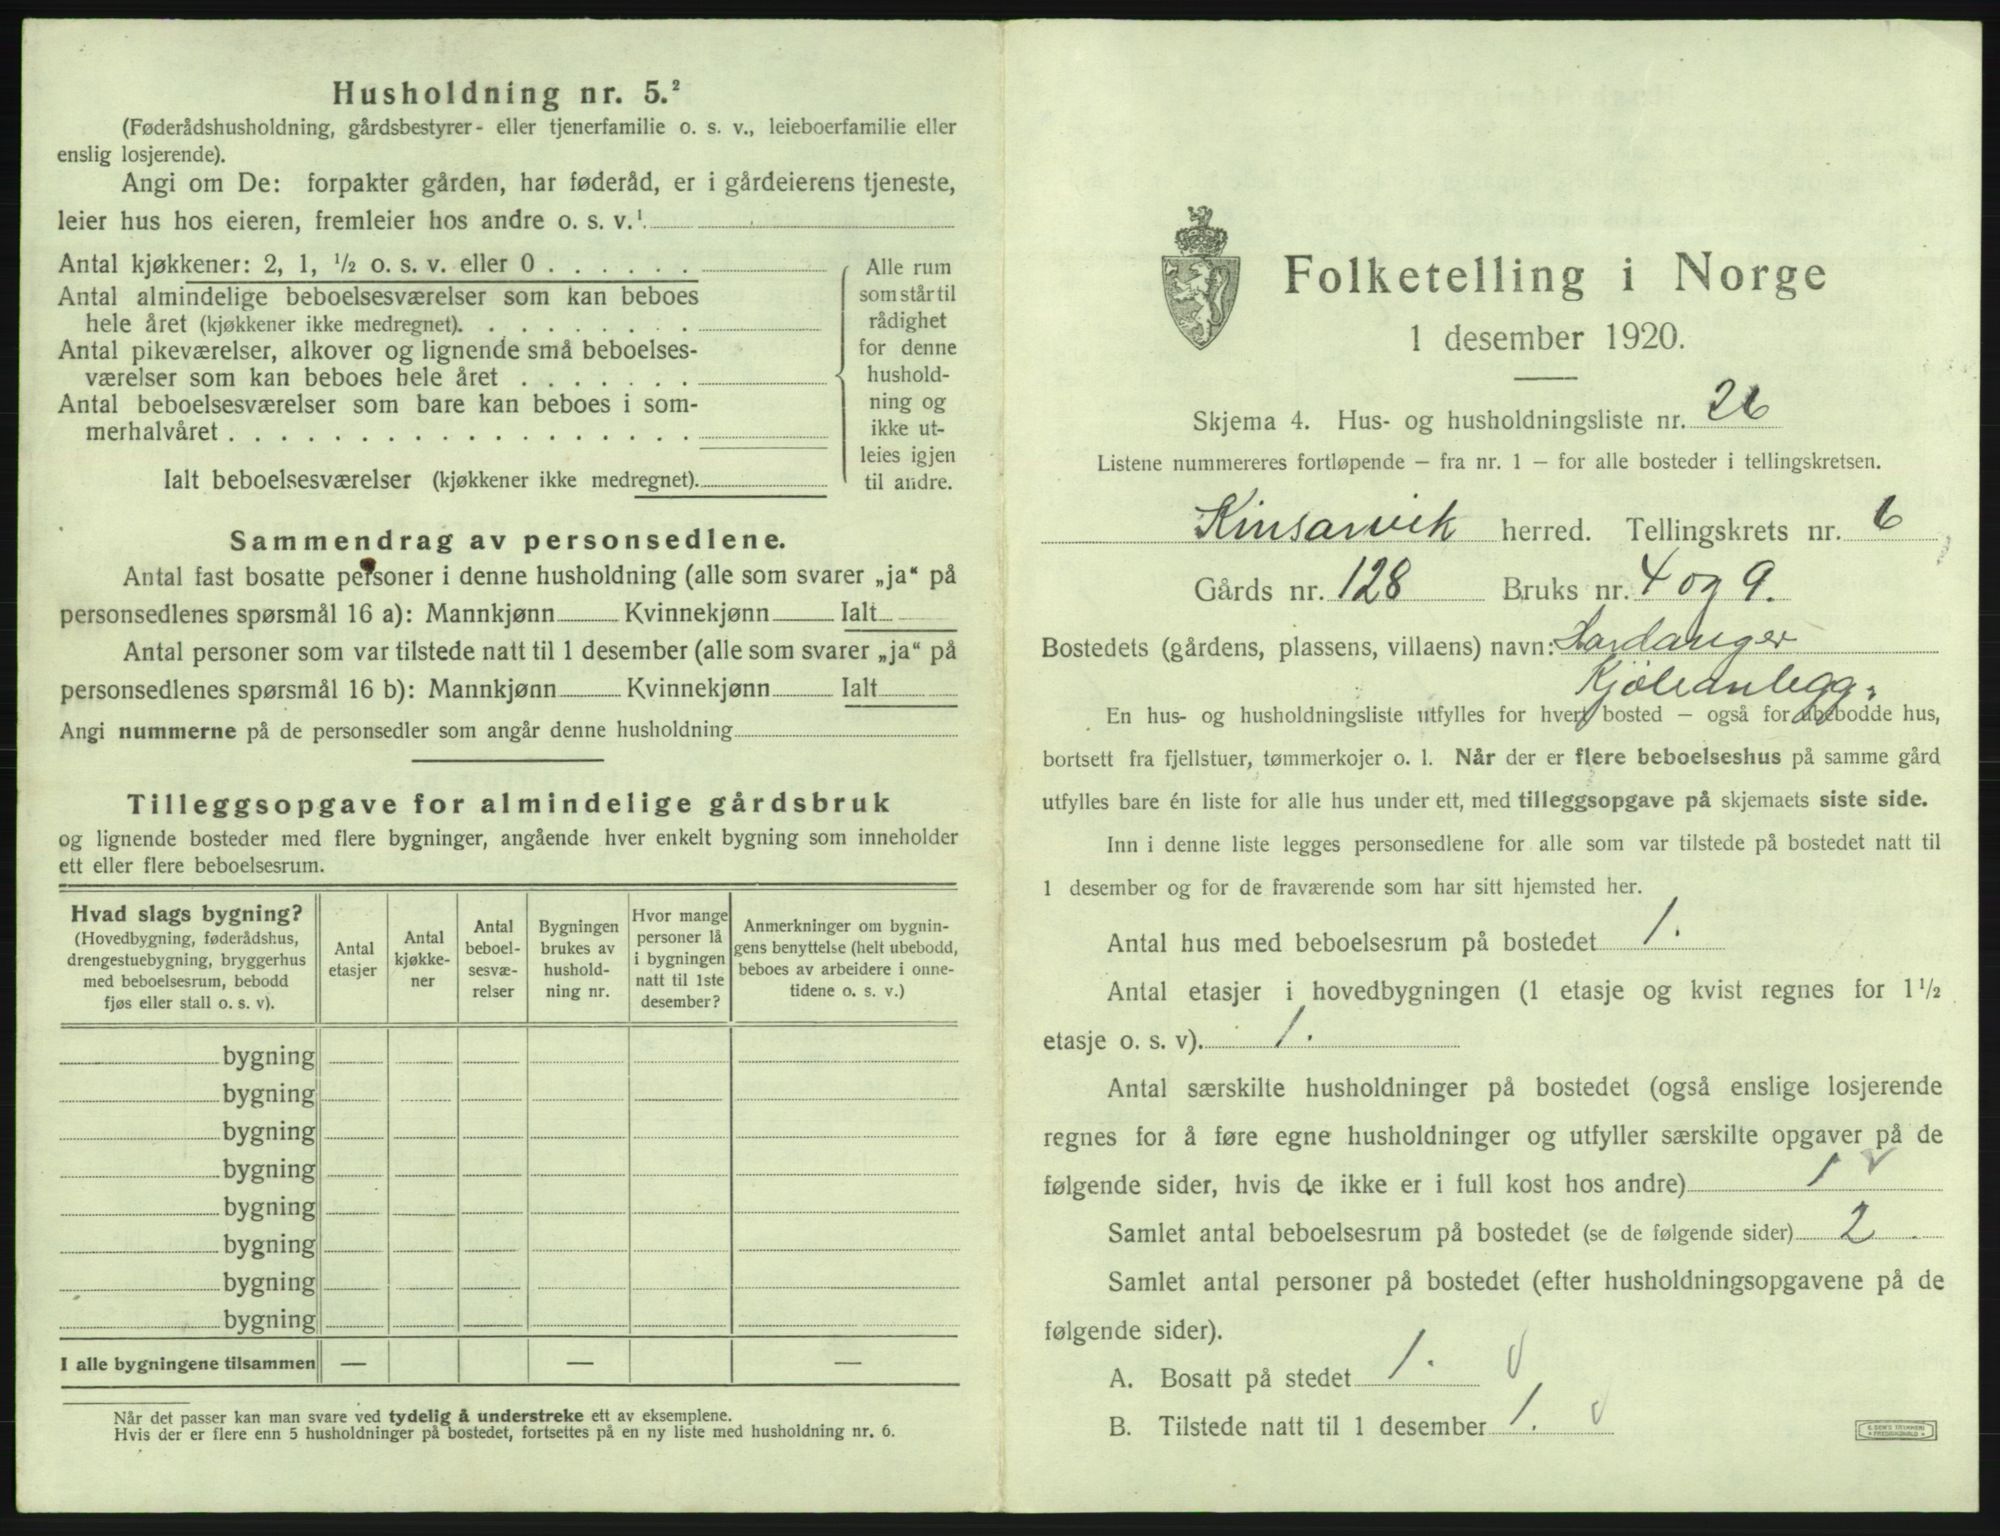 Husholdning nr. 5.²
(Føderådshusholdning, gårdsbestyrer- eller tjenerfamilie o. s. v., leieboerfamilie eller
enslig losjerende).
Angi om De: forpakter gården, har føderåd, er i gårdeierens tjeneste,
leier hus hos eieren, fremleier hos andre o. s. v.¹
Antal kjøkkener: 2, 1, ½ o. s. v. eller 0 . . . . . .
Antal almindelige beboelsesværelser som kan beboes
hele året (kjøkkener ikke medregnet). . . . . . . . .
Antal pikeværelser, alkover og lignende små beboelses-
værelser som kan beboes hele året . . . . . . .
Antal beboelsesværelser som bare kan beboes i som-
merhalvåret . . . . . . . . . . . . . . . . . .
Ialt beboelsesværelser (kjøkkener ikke medregnet).
Alle rum
som står til
rådighet
for denne
hushold-
ning og
ikke ut-
leies igjen
til andre.
Sammendrag av personsedlene.
Antal fast bosatte personer i denne husholdning (alle som svarer „ja“ på
personsedlenes spørsmål 16 a): Mannkjønn Kvinnekjønn Ialt
Antal personer som var tilstede natt til 1 desember (alle som svarer „ja“ på
personsedlenes spørsmål 16 b): Mannkjønn Kvinnekjønn Ialt
Angi nummerne på de personsedler som angår denne husholdning
Tilleggsopgave for almindelige gårdsbruk
og lignende bosteder med flere bygninger, angående hver enkelt bygning som inneholder
ett eller flere beboelsesrum.
Hvad slags bygning?
(Hovedbygning, føderådshus,
drengestuebygning, bryggerhus
med beboelsesrum, bebodd
fjøs eller stall o. s. v).
Antal
etasjer
Antal
kjøkke-
ner
Antal
beboel-
sesvæ-
relser
Bygningen
brukes av
hushold-
ning nr.
Hvor mange
personer lå
i bygningen
natt til 1ste
desember?
Anmerkninger om bygnin-
gens benyttelse (helt ubebodd,
beboes av arbeidere i onne-
tidene o. s. v.)
bygning
bygning
bygning
bygning
bygning
bygning
bygning
bygning
I alle bygningene tilsammen — — —
Når det passer kan man svare ved tydelig å understreke ett av eksemplene.
Hvis der er flere enn 5 husholdninger på bostedet, fortsettes på en ny liste med husholdning nr. 6.
Folketelling i Norge
1 desember 1920.
Skjema 4. Hus- og husholdningsliste nr. 26
Listene nummereres fortløpende – fra nr. 1 – for alle bosteder i tellingskretsen.
Kinsarvik herred. Tellingskrets nr. 6
Gårds nr. 128 Bruks nr. 4 og 9.
Bostedets (gårdens, plassens, villaens) navn: Hardanger
Kjøleanlegg
En hus- og husholdningsliste utfylles for hvert bosted – også for ubebodde hus,
bortsett fra fjellstuer, tømmerkojer o. l. Når der er flere beboelseshus på samme gård
utfylles bare én liste for alle hus under ett, med tilleggsopgave på skjemaets siste side.
Inn i denne liste legges personsedlene for alle som var tilstede på bostedet natt til
1 desember og for de fraværende som har sitt hjemsted her.
Antal hus med beboelsesrum på bostedet 1.
Antal etasjer i hovedbygningen (1 etasje og kvist regnes for 1½
etasje o. s. v). 1.
Antal særskilte husholdninger på bostedet (også enslige losjerende
regnes for å føre egne husholdninger og utfyller særskilte opgaver på de
følgende sider, hvis de ikke er i full kost hos andre) 1
Samlet antal beboelsesrum på bostedet (se de følgende sider) 2
Samlet antal personer på bostedet (efter husholdningsopgavene på de
følgende sider).
A. Bosatt på stedet 1.
B. Tilstede natt til 1 desember 1.